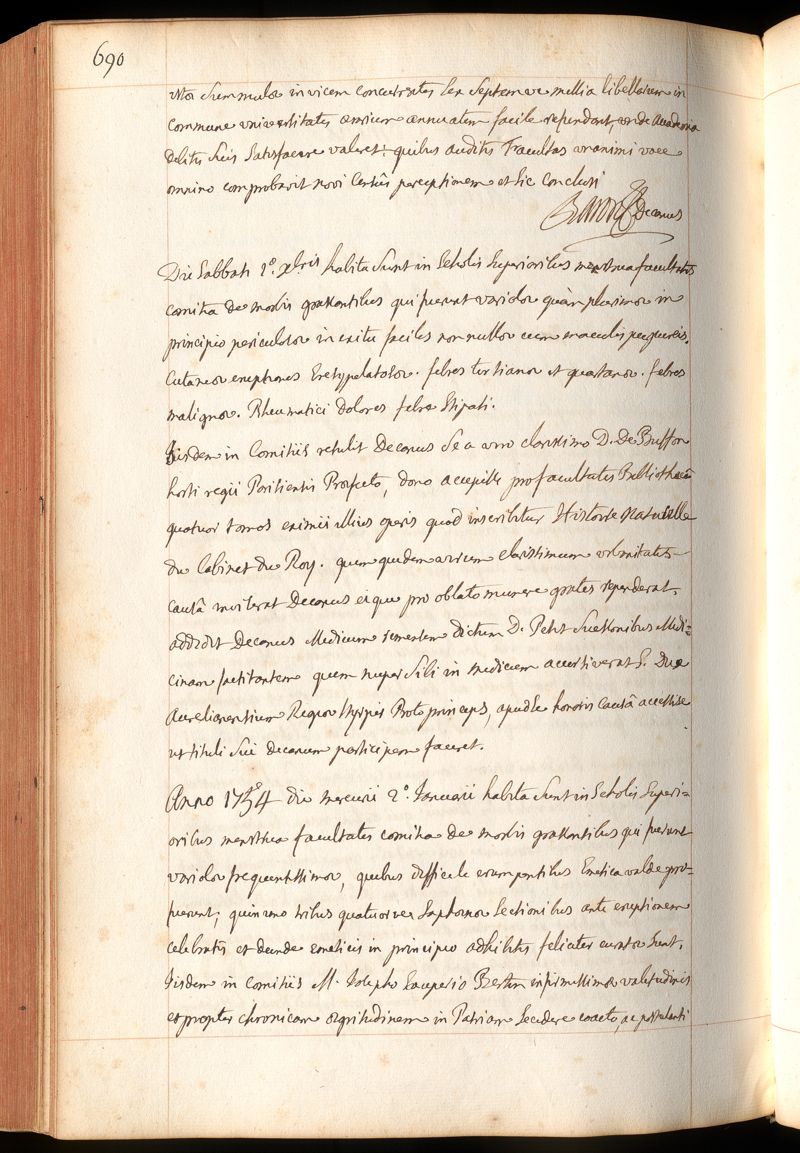 690
summulæ invicem concurrentes sex septemve millia libellarum in
commune universitatis ærarium annuatim facile refundant, unde Academia
debitis suis satisfacere valeret. quibus auditis Facultas unanimi voce
omnino comprobavit novi Census perceptionem et sic conclusi
Baron Decanus
Die Sabbati 1°. Xbris habita sunt in Scholis Superioribus menstrua facultatis
comitia de morbis grassantibus qui fuerunt variolæ quàm plurimæ in
principio periculosæ in exitu faciles nonnullæ cum maculis purpureis.
Cutaneæ eruptiones Eresypelatosæ. febres tertianæ et quartanæ. febres
malignæ. Rheumatici dolores febre stipati.
Iisdem in Comitiis retulit Decanus se a viro clarissimo D. De Buffon
horti regii Parisiensis Præfecto, dono accepisse pro facultatis Bibliothecâ
quatuor tomos eximii illius operis quod inscribitur Histoire naturelle
du Cabinet du Roy. quem quidem virum clarissimum urbanitatis
causâ inviserat Decanus eique pro oblato munere grates rependerat.
addidit Decanus Medicum dictum D. Petit Suessionibus Medi=
cinam factitantem quem nuper sibi in medicum accersiverat S. Dux
Aurelianensium Regiæ stirpis Proto princeps, apud se honoris causâ accessisse
ut tituli sui decanum participem faceret.
Anno 1754 die mercurii 2°. Ianuarii habita sunt in Scholis Superi=
oribus menstrua facultatis comitia de morbis grassantibus qui fuerunt
variolæ frequentissimæ, quibus difficile erumpentibus Emetica valde pro=
fuerunt, quin imo tribus quatuorve Saphenæ Sectionibus ante eruptionem
celebratis et deinde emeticis in principio adhibitis feliciter curatæ sunt.
Iisdem in comitiis M. Iosepho Exuperio Bertin infirmissimæ valetudinis
et propter chronicam ægritudinem in Patriam secedere coacto, ac postulanti